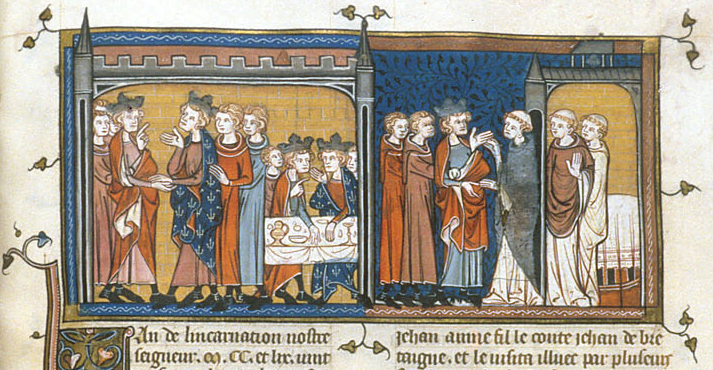 An de lincarnation nostre
seigneur. m. CC. et lix. vint
Jehan ainne fil le conte jehan de bre
taigne. et le visita illuec par pluseurs